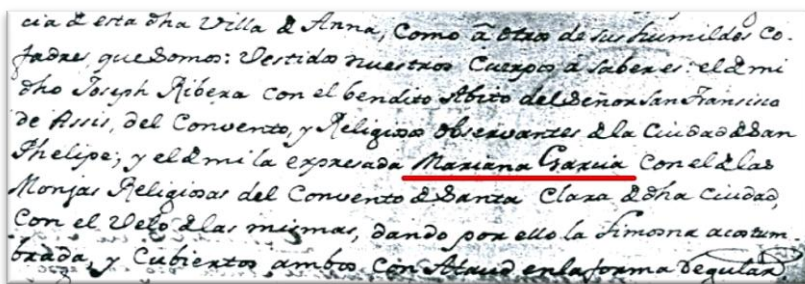 cia de esta dha Villa de Anna, Como â otros de sus humildes Co-
fadres, que Somos: Vestidos nuestros Cuerpos â saberes: el de mi
dho Joseph Ribera con el bendito Abito del Señor San Fransisco
de Assis, del Convento, y Religiosos observantes de la Ciudad de San
Phelipe; y el de mi la expresada Mariana Garcia Con el de las
Monjas Religiosas del Convento de Santa Clara de dha Ciudad,
Con el Velo de las mismas, dando por ello la Limosna acostum-
brada, y Cubiertos ambos Con Ataud en la forma Regular